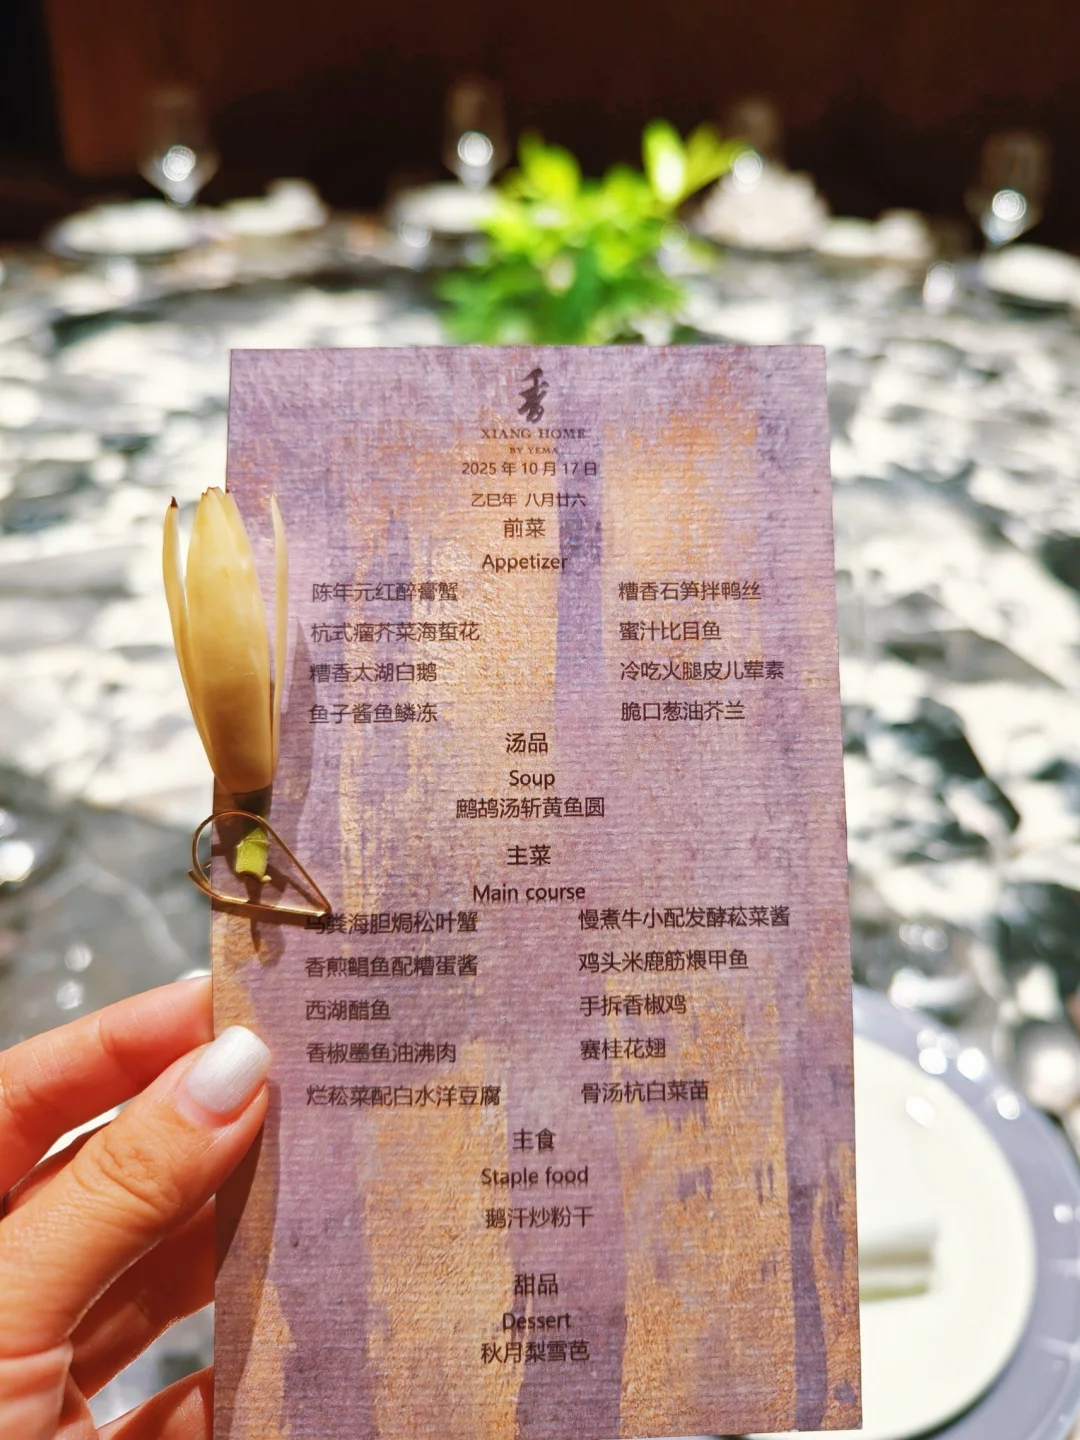 香
XIANG HOME
BY YEMA
2025 年 10 月 17 日
乙巳年 八月廿六
前菜
Appetizer
陈年元红醉膏蟹 糟香石笋拌鸭丝
杭式瘤芥菜海蜇花 蜜汁比目鱼
糟香太湖白鹅 冷吃火腿皮儿荤素
鱼子酱鱼鳞冻 脆口葱油芥兰
汤品
Soup
鹧鸪汤斩黄鱼圆
主菜
Main course
马粪海胆焗松叶蟹 慢煮牛小配发酵菘菜酱
香煎鲳鱼配糟蛋酱 鸡头米鹿筋煨甲鱼
西湖醋鱼 手拆香椒鸡
香椒墨鱼油沸肉 赛桂花翅
烂菘菜配白水洋豆腐 骨汤杭白菜苗
主食
Staple food
鹅汗炒粉干
甜品
Dessert
秋月梨雪芭